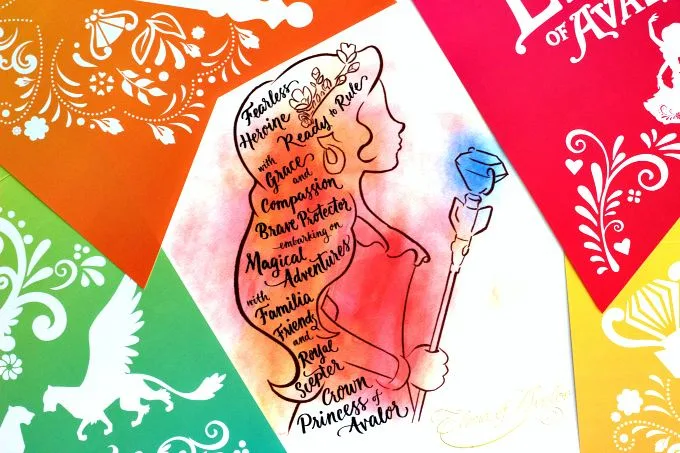 OF AVALOR
Fearless
Heroine Ready to Rule
with
Grace
and
Compassion
Brave Protector
embarking on
Magical
Adventures
with
Familia
Friends
and
Royal
Scepter
Crown
Princess of
Avalor
Elena of Avalor